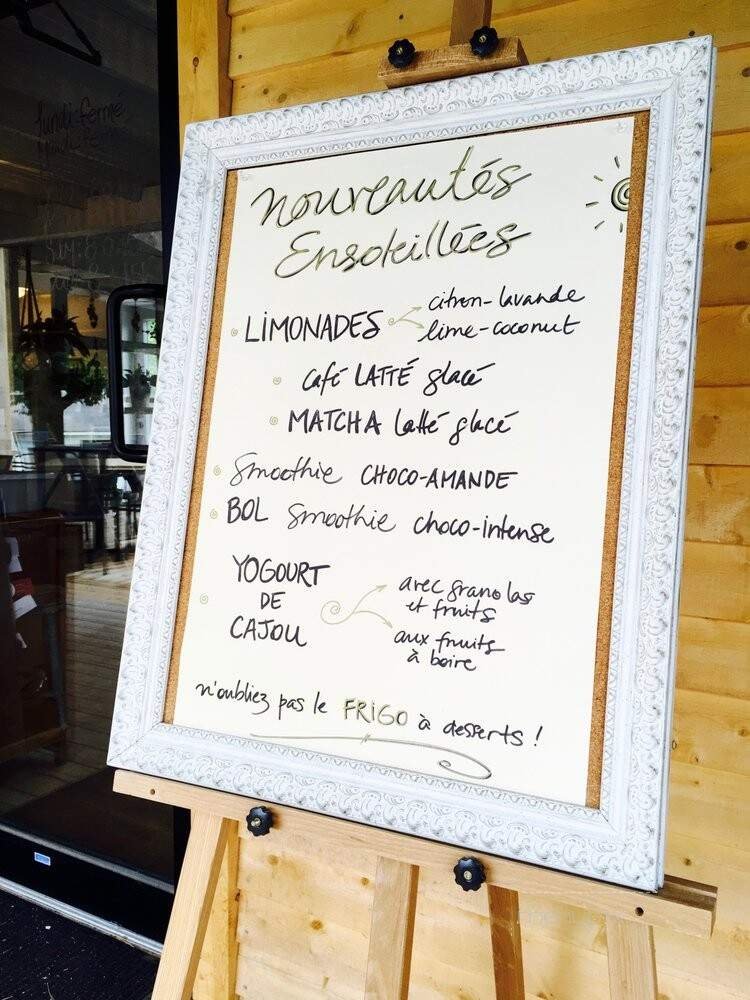 lundi: fermé
Nouveautés
Ensoleillées
LIMONADES
citron-lavande
lime-coconut
café LATTÉ glacé
MATCHA latté glacé
Smoothie CHOCO-AMANDE
BOL Smoothie choco-intense
YOGOURT
DE
CAJOU
avec granolas
et fruits
aux fruits
à boire
n'oubliez pas le FRIGO à desserts !